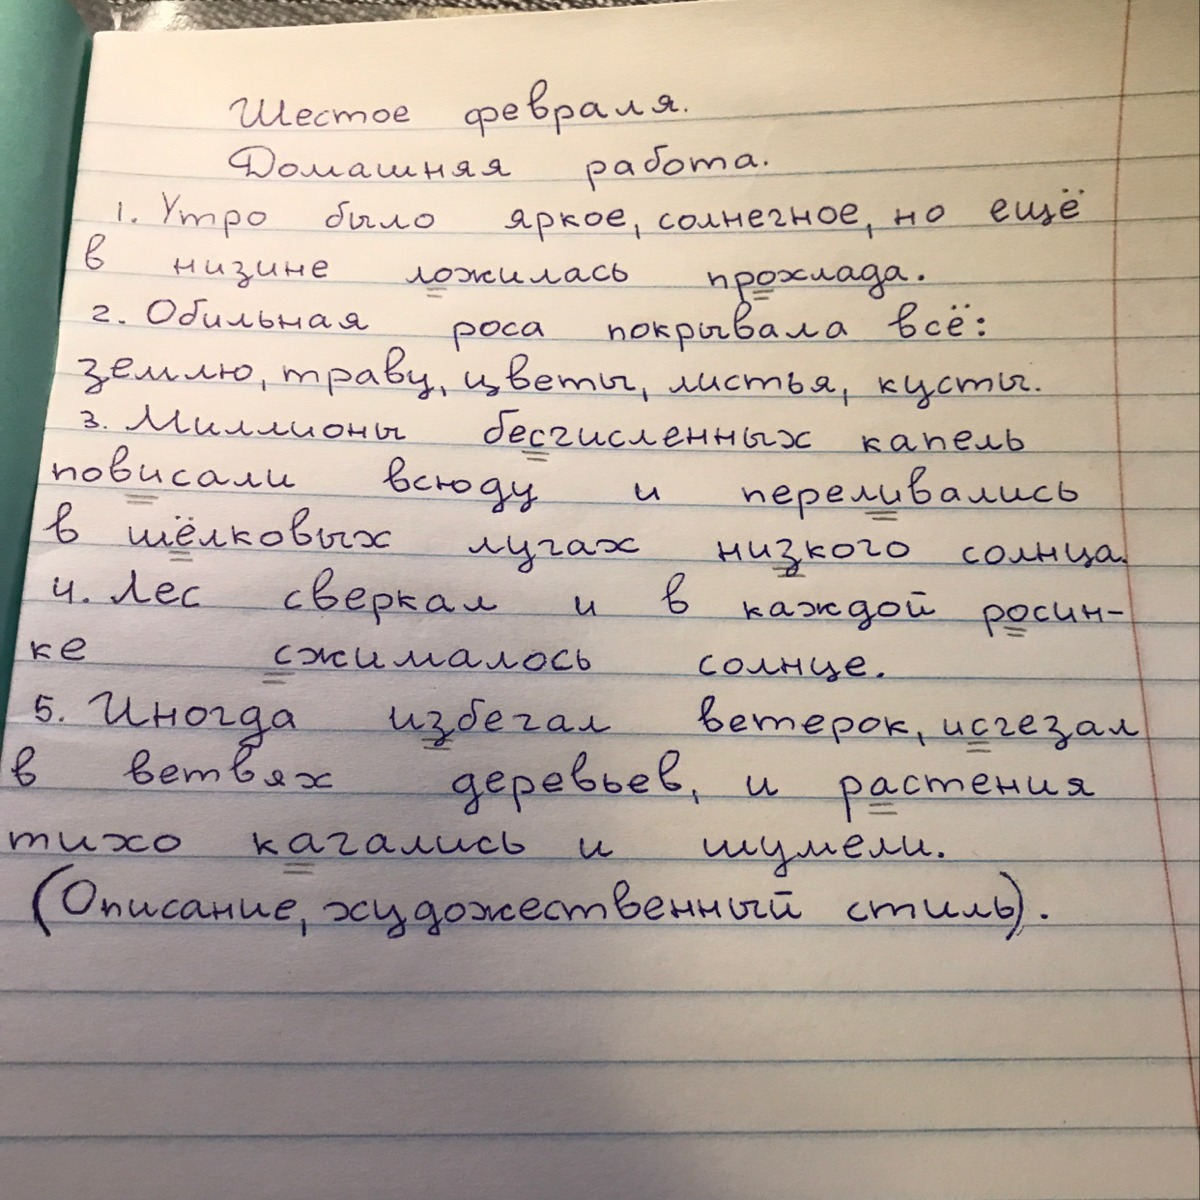 Шестое февраля.
Домашняя работа.
1. Утро было яркое, солнечное, но ещё
в низине ложилась прохлада.
2. Обильная роса покрывала всё:
землю, траву, цветы, листья, кусты.
3. Миллионы бесчисленных капель
повисали всюду и переливались
в шёлковых лучах низкого солнца.
4. Лес сверкал и в каждой росин-
ке сжималось солнце.
5. Иногда избегал ветерок, исчезал
в ветвях деревьев, и растения
тихо качались и шумели.
(Описание, художественный стиль).